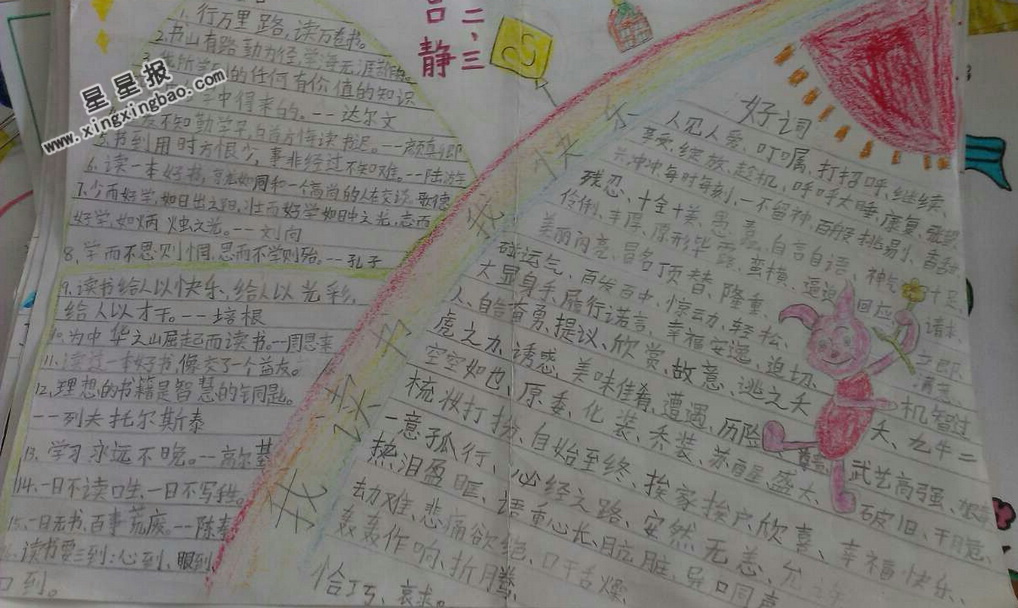 二、三
吉静
星星报
www.xingxingbao.com
1. 行万里路,读万卷书。
2. 书山有路勤为径,学海无涯
所学到的任何有价值的知识
中得来的。--达尔文
不知勤学早,白首方悔读书迟。--颜真卿
书到用时方恨少,事非经过不知难。--陆游
6. 读一本好书,
7. 少而好学,如日出之阳,壮而好学如日中之光,志而
好学,如炳烛之光。--刘向
8. 学而不思则惘,思而不学则殆。--孔子
9. 读书给人以快乐、给人以光彩,
给人以才干。--培根
10. 为中华之崛起而读书。--周恩来
11. 读过一本好书,像交了个益友。
12. 理想的书籍是智慧的钥匙。
--列夫托尔斯泰
13. 学习永远不晚。--高尔基
14. 一日不读口生,一日不写手
15. 一日无书,百事荒废。--陈寿
读书要三到:心到、眼到
口到。
好词
人见人爱、叮嘱、打招呼、继续、
享受、绽放、趁机、呼呼大睡、康复、
冲冲、每时每刻、一不留神、百般挑剔、香甜
残忍、十全十美、愚蠢、自言自语、神
伶俐、丰厚、原形毕露、蛮横、逼迫、回应、十足
美丽闪亮、冒名顶替、隆重、
碰运气、百发百中、惊动、轻松、
大显身手、履行诺言、幸福安逸、迫切、立即、
人、自告奋勇、提议、欣赏、故意、逃之夭
虎之力、诱惑、美味佳肴、遭遇、历险、机智过
空空如也、原委、化装、乔装、夭、九牛二
梳妆打扮、自始至终、挨家挨户、武艺高强、
一意孤行、必经之路、安然无恙、欣喜、破旧、
热泪盈眶、语重心长、肮脏、异口同声、幸福快乐、
劫难、悲痛欲绝、口干舌燥、
轰轰作响、折腾、
恰巧、哀求。